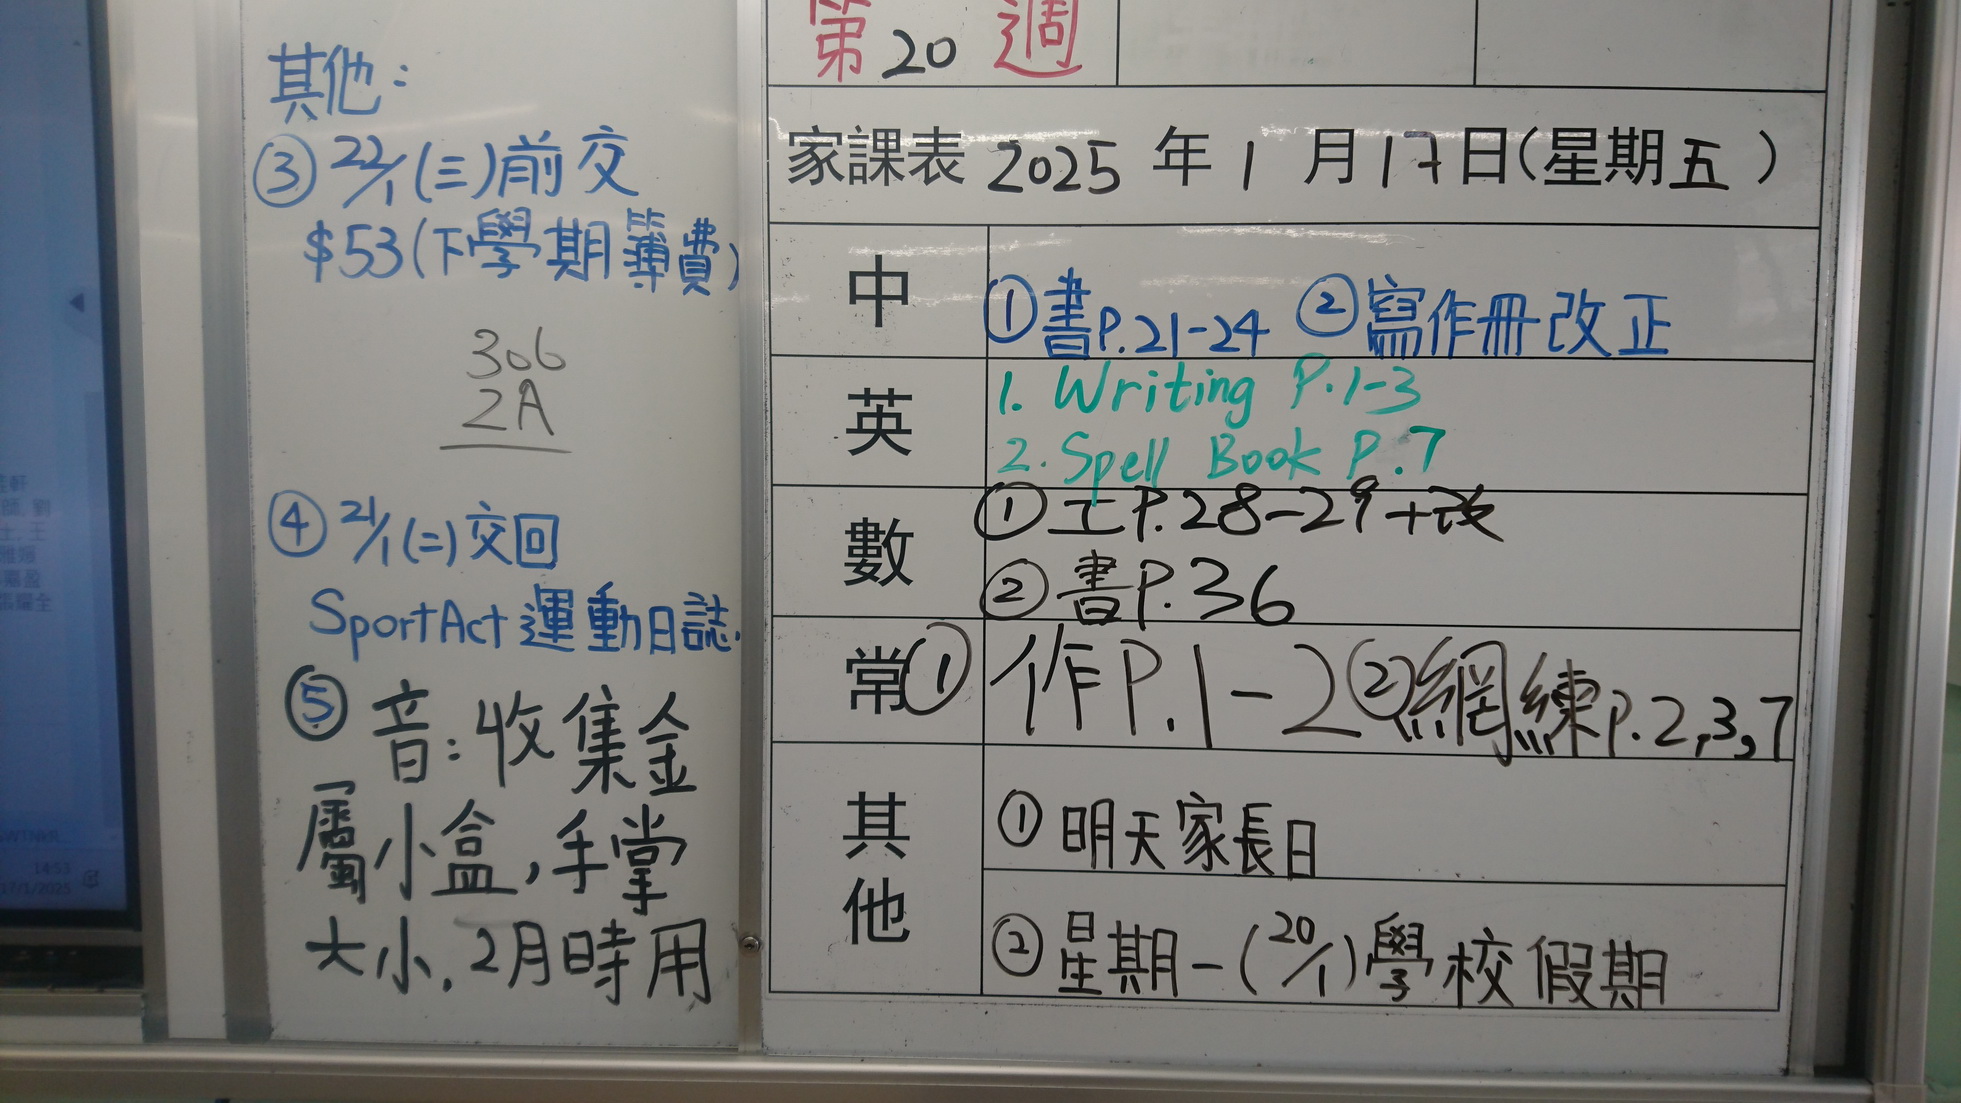 其他:
③ 22/1 (三)前交
$53(下學期簿費)
306
2A
④ 21/1 (二)交回
SportAct運動日誌.
⑤音:收集金
屬小盒,手掌
大小,2月時用
第20週
家課表 2025 年 1 月 17 日(星期五)
中 ①書P.21-24 ②寫作冊改正
英 1. Writing P.1-3
2. Spell Book P.7
數 ①工P.28-29+改
②書P.36
常 ①作P.1-2 ②網練P.2,3,7
其他 ①明天家長日
②星期一(20/1)學校假期
14:53
17/1/2025